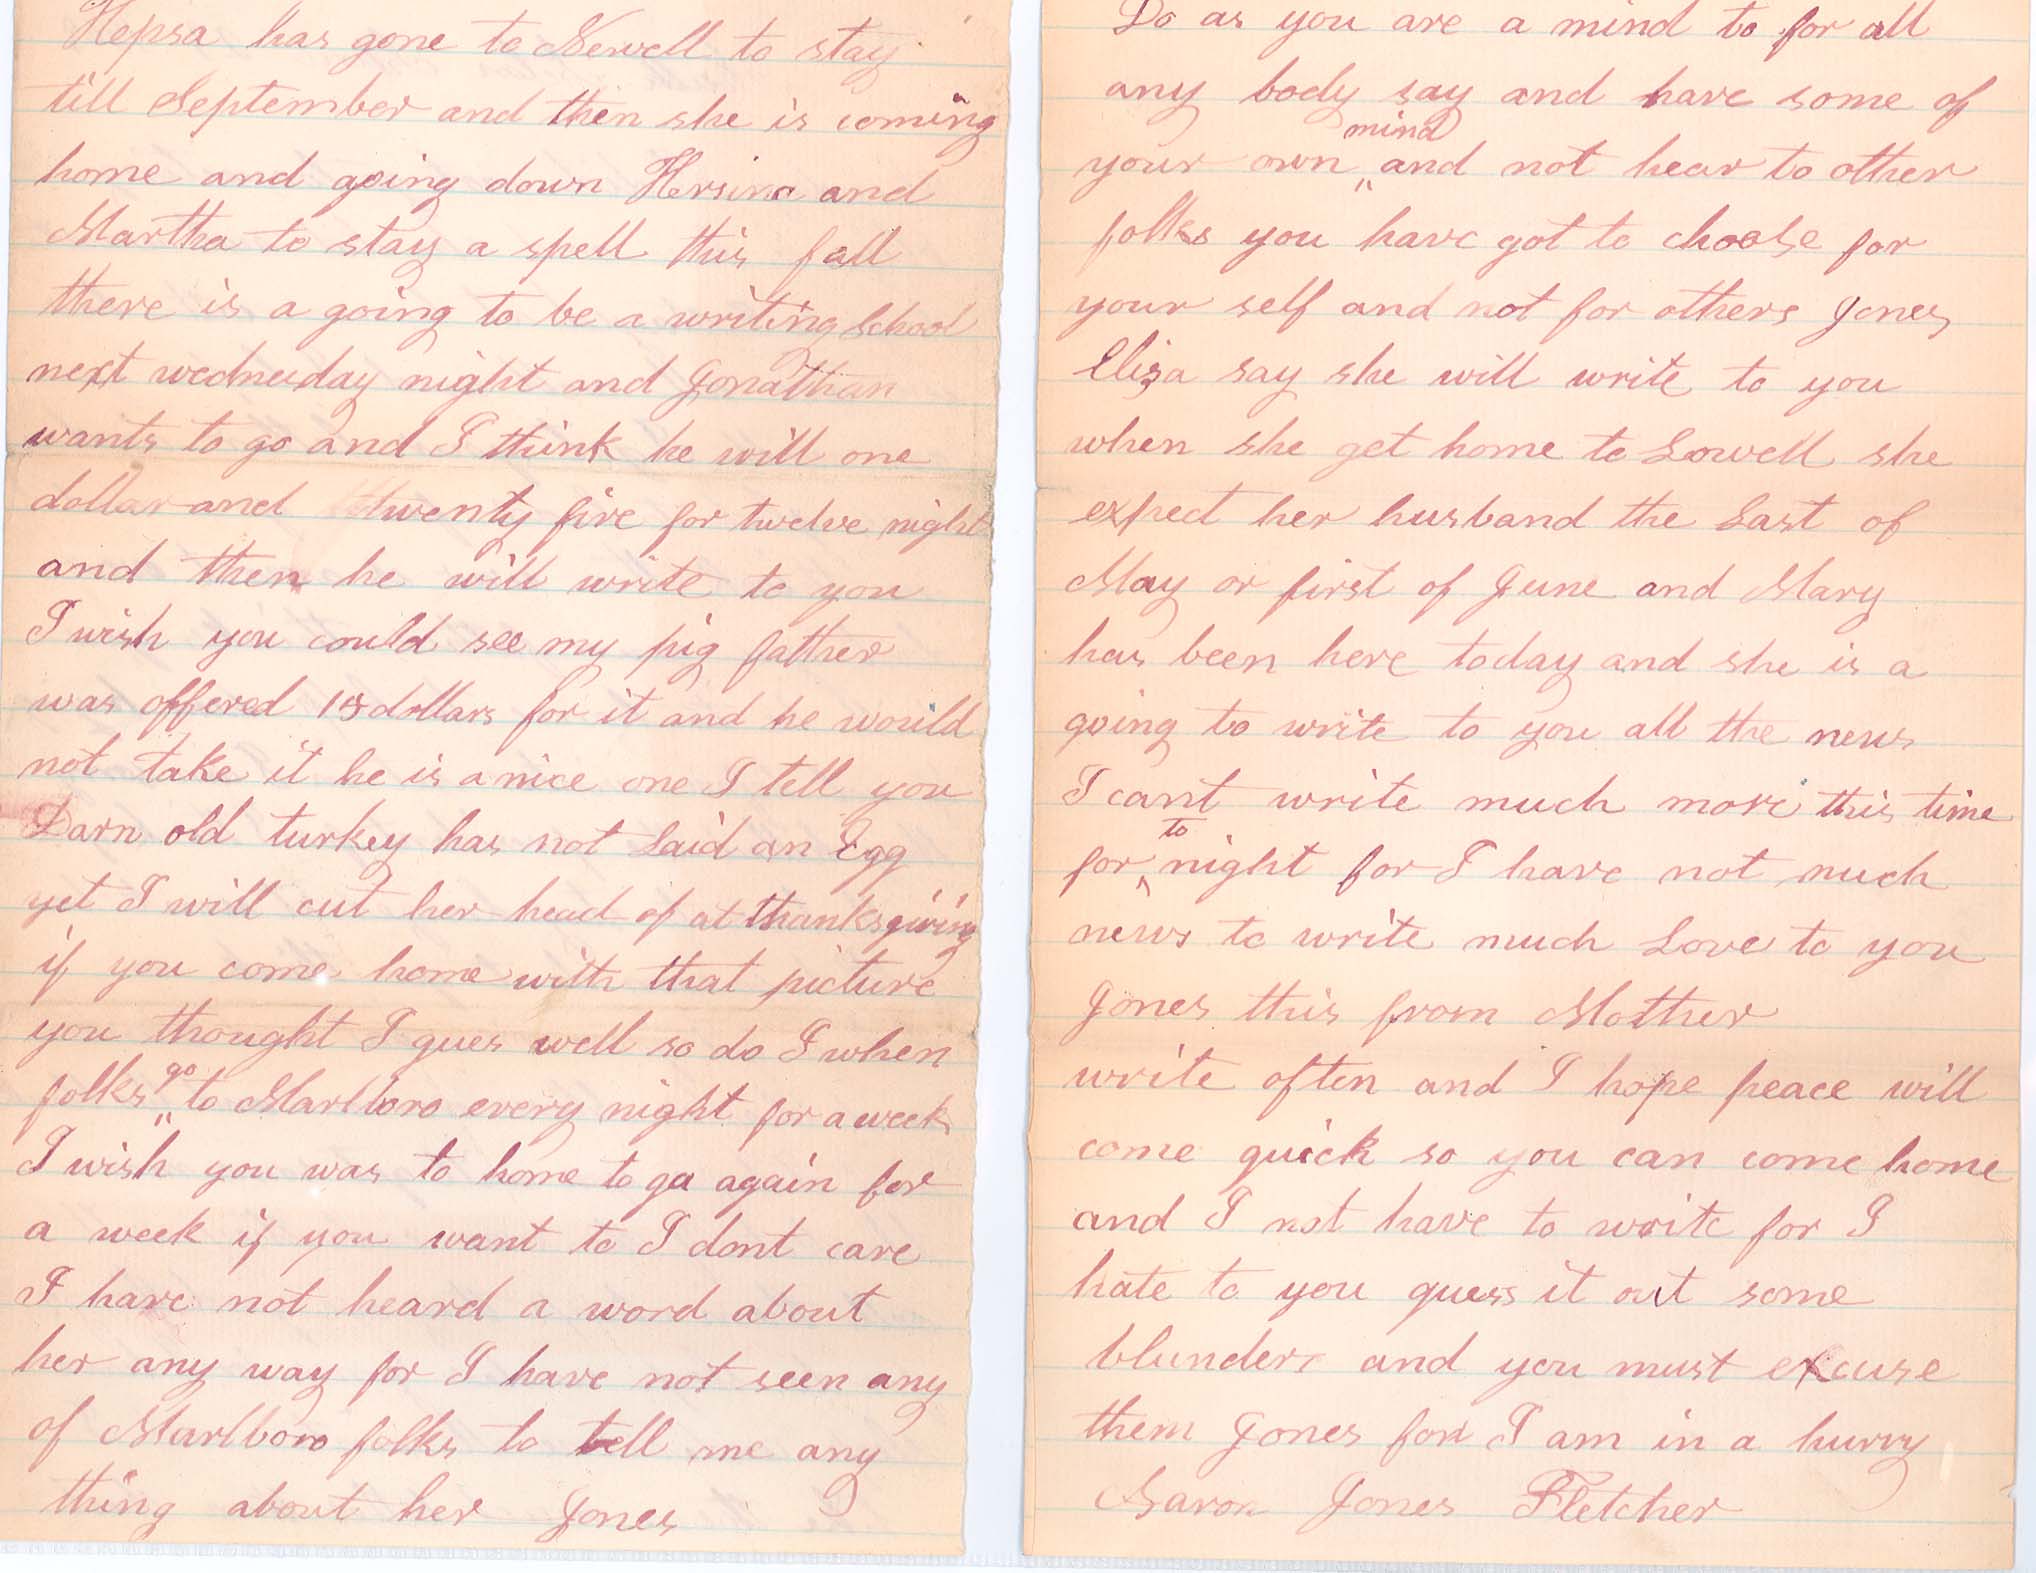 Hepsa has gone to Newell to stay
till September and then she is coming
home and going down Hersina and
Martha to stay a spell this fall
there is a going to be a writing school
next wednesday night and Jonathan
wants to go and I think he will one
dollar and twenty five for twelve night
and then he will write to you
I wish you could see my pig father
was offered 15 dollars for it and he would
not take it he is a nice one I tell you
Darn old turkey has not laid an Egg
yet I will cut her head of at thanksgiving
if you come home with that picture
you thought I gues well so do I when
folks go to Marlboro every night for a week
I wish you was to home to go again for
a week if you want to I dont care
I have not heard a word about
her any way for I have not seen any
of Marlboro folks to tell me any
thing about her Jones
Do as you are a mind to for all
any body say and have some of
your own mind and not hear to other
folks you have got to choose for
your self and not for others Jones
Eliza say she will write to you
when she get home to Lowell she
expect her husband the last of
May or first of June and Mary
has been here today and she is a
going to write to you all the news
I cant write much more this time
for to night for I have not much
news to write much Love to you
Jones this from Mother
write often and I hope peace will
come quick so you can come home
and I not have to write for I
hate to you guess it out some
blunders and you must excuse
them Jones for I am in a hurry
Aaron Jones Fletcher